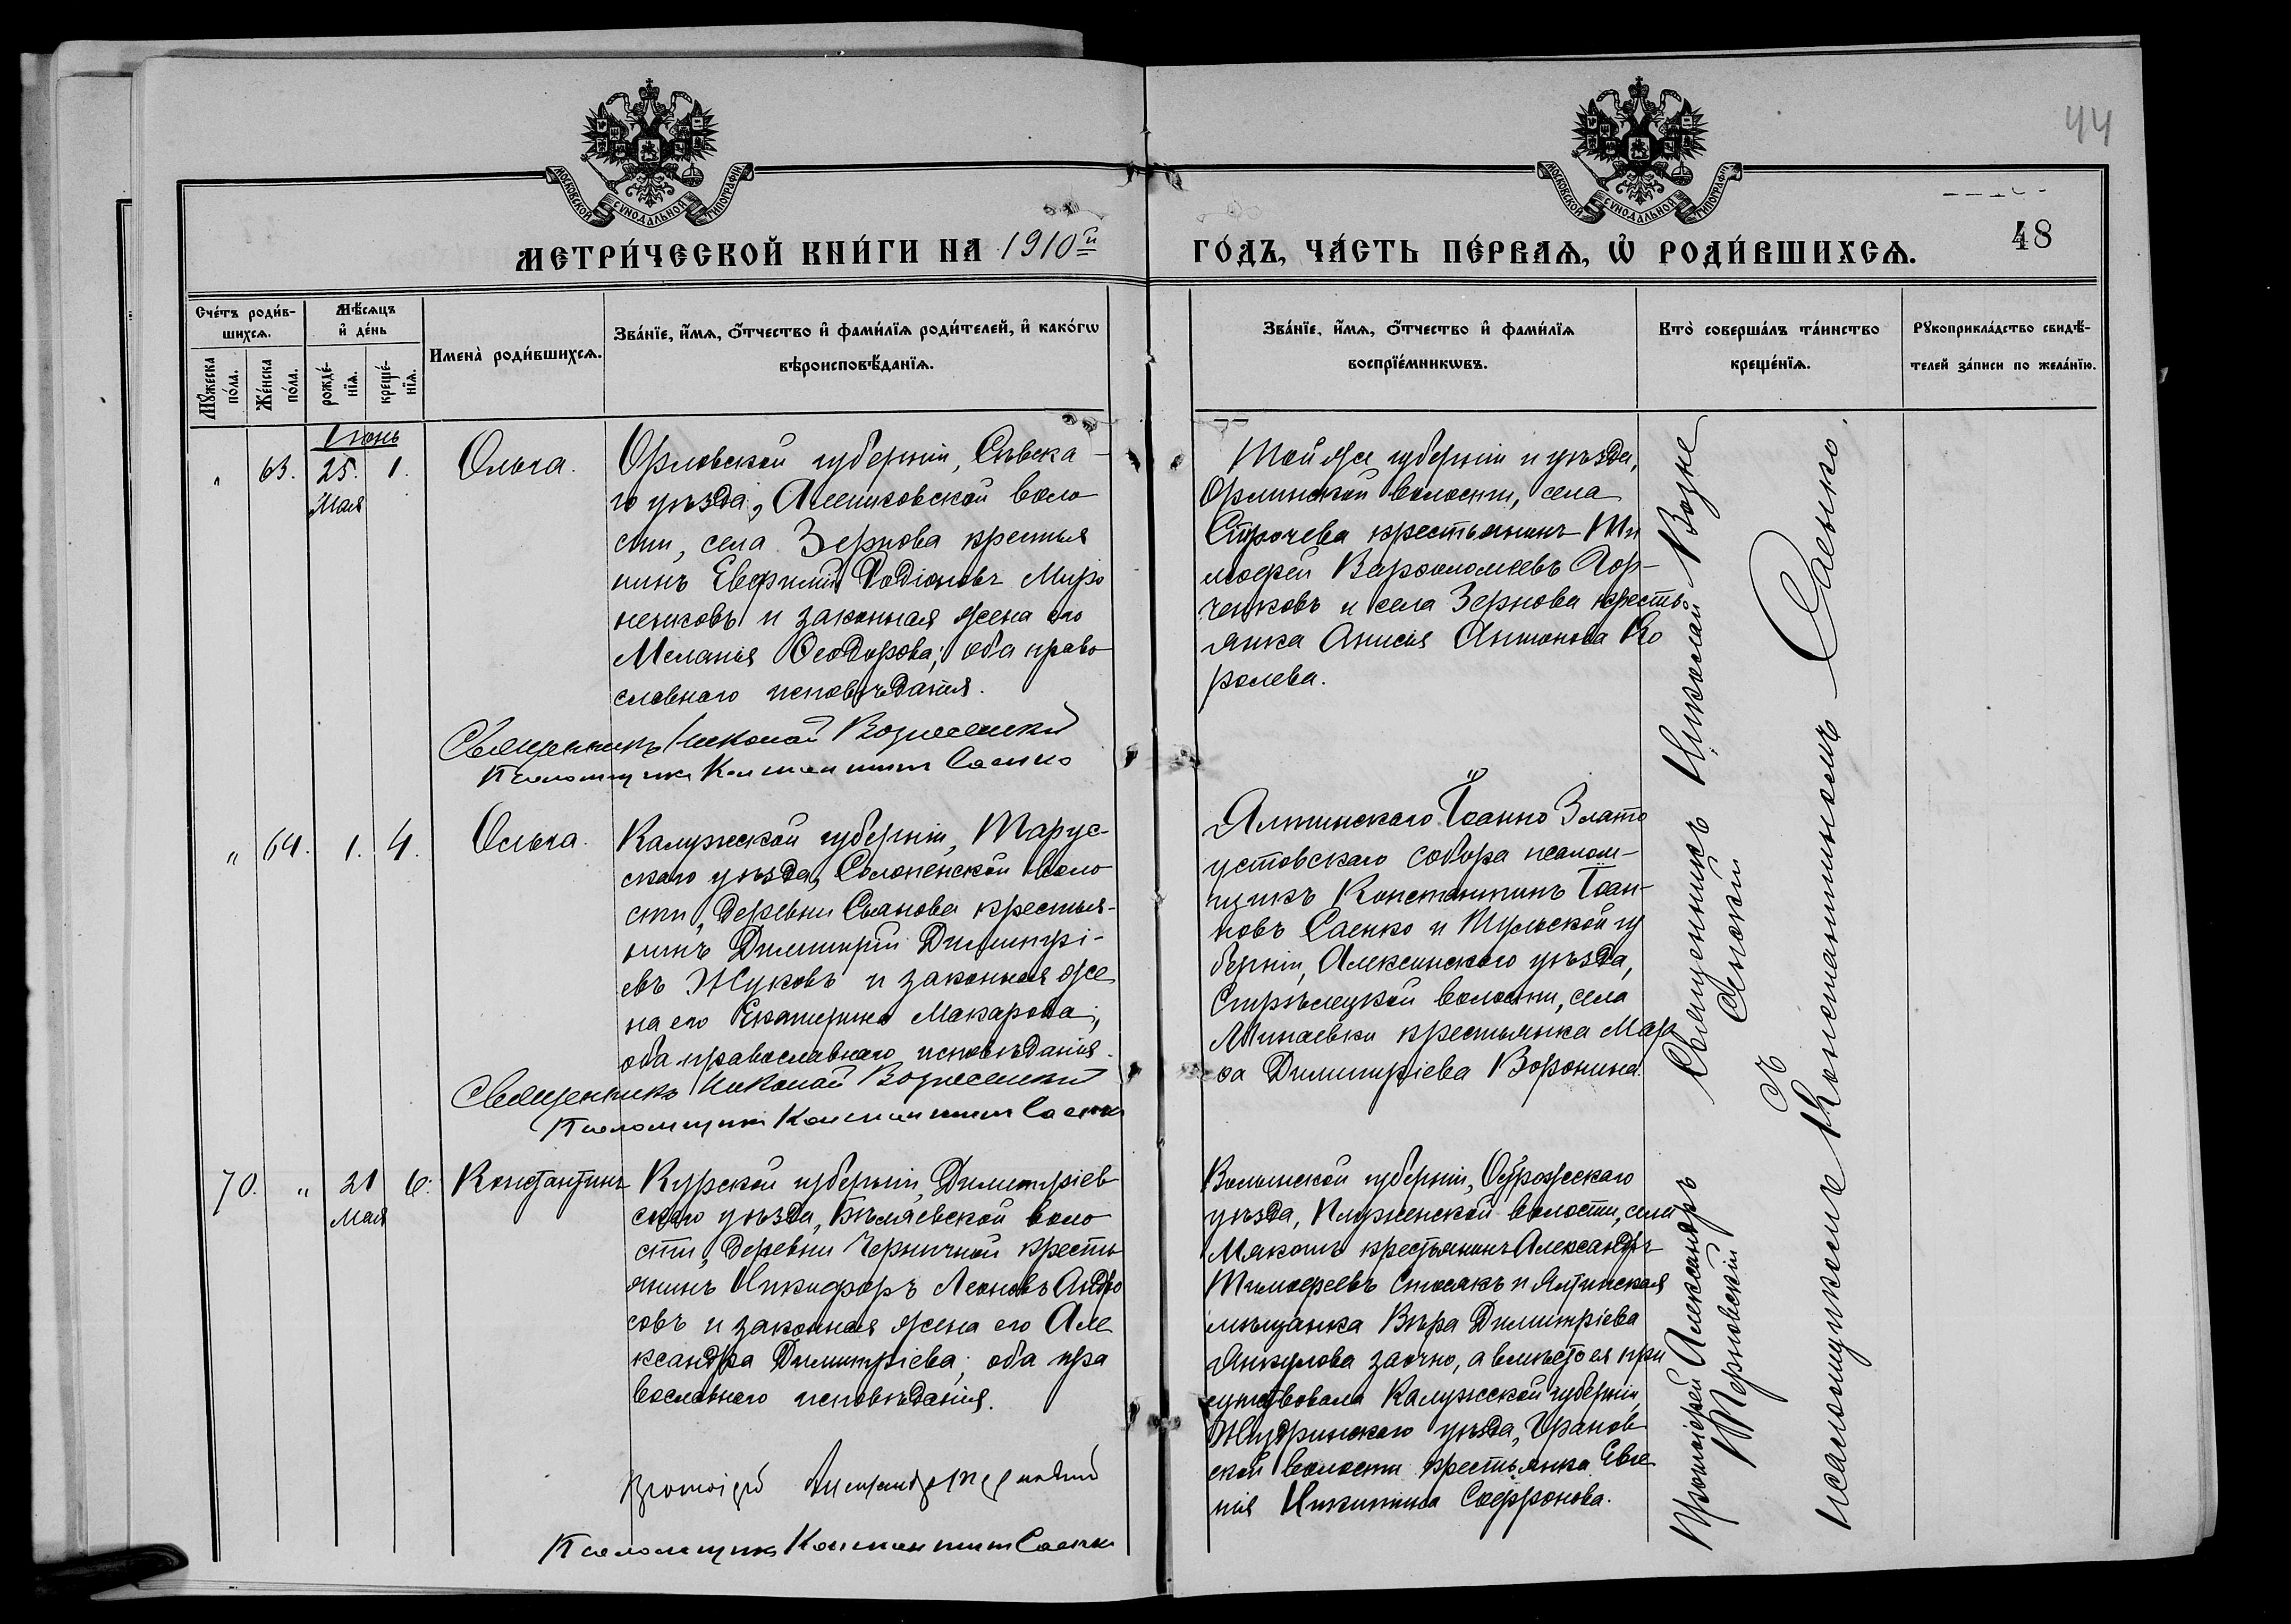 44
МОСКОВСКОЙ СѴНОДАЛЬНОЙ ТИПОГРАФІИ
МОСКОВСКОЙ СѴНОДАЛЬНОЙ ТИПОГРАФІИ
МЕТРИ́ЧЕСКОЙ КНИ́ГИ НА 1910й
ГО́ДЪ, ЧА́СТЬ ПЕ́РВАѦ, Ѡ РОДИ́ВШИХСѦ.
48
Сче́тъ роди́в-
шихсѧ.
Мѣ́сѧцъ
и де́нь
Мꙋ́жеска
по́ла.
Же́нска
по́ла.
рожде́-
нїѧ.
креще́-
нїѧ.
Имена̀ роди́вшихсѧ.
Зва́нїе, и́мѧ, о́тчество и фами́лїѧ роди́телей, и како́гѡ
вѣроисповѣ́данїѧ.
Зва́нїе, и́мѧ, о́тчество и фами́лїѧ
воспрїе́мникѡвъ.
Кто̀ соверша́лъ та́инство
креще́нїѧ.
Рꙋкоприкла́дство свидѣ́-
телей за́писи по жела́нїю.
Іюнь
" 63. 25. 1.
Мая
Ольга.
Орловской губерніи, Сѣвска-
го уѣзда, Алешковской воло
сти, села Зернова крестья
нинъ Евфимій Родіоновъ Миро
ненковъ и законная жена его
Меланья Ѳеодорова; оба право
славнаго исповѣданія.
Священникъ Николай Вознесенскій
Псаломщикъ Константинъ Саенко
Той же губерніи и уѣзда,
Орлинской волости, села
Строчева крестьянинъ Ти
моѳей Варѳоломеевъ Гор-
ченковъ и села Зернова кресть-
янка Анисія Антонова Ко
ролева.
" 64. 1. 4.
Ольга.
Калужской губерніи, Тарус-
скаго уѣзда, Солопенской воло
сти, деревни Сьянова крестья-
нинъ Димитрій Димитрі-
евъ Жуковъ и законная же
на его Екатерина Макарова;
оба православнаго исповѣданія.
Священникъ Николай Вознесенскій
Псаломщикъ Константинъ Саенко
Ялтинскаго Іоанно Злато
устовскаго собора псалом-
щикъ Константинъ Іоан-
новъ Саенко и Тульской гу
берніи, Алексинскаго уѣзда,
Стрѣлецкой волости, села
Минаевки крестьянка Мар
ѳа Димитріева Воронина.
Священникъ Николай Возне
сенскій
70. " 21 6.
Мая
Константинъ
Курской губерніи, Димитріев
скаго уѣзда, Бѣляевской воло
сти, деревни Черничной кресть
янинъ Никифоръ Леоновъ Андро
совъ и законная жена его Але
ксандра Димитріева; оба пра
вославнаго исповѣданія.
Протоіерей Александръ Терновскій
Псаломщикъ Константинъ Саенко
Волынской губерніи, Острожскаго
уѣзда, Плужненской волости, села
Мякоты крестьянинъ Александръ
Тимоѳеевъ Стосякъ и Ялтинская
мѣщанка Вѣра Димитріева
Янкулова заочно, а вмѣсто ея при
сутствовала Калужской губерніи
Жиздринскаго уѣзда, Грановской
волости крестьянка Евге
нія Никитина Софронова.
Протоіерей Александръ
Терновскій
Съ
псаломщикомъ Константиномъ Саенко.